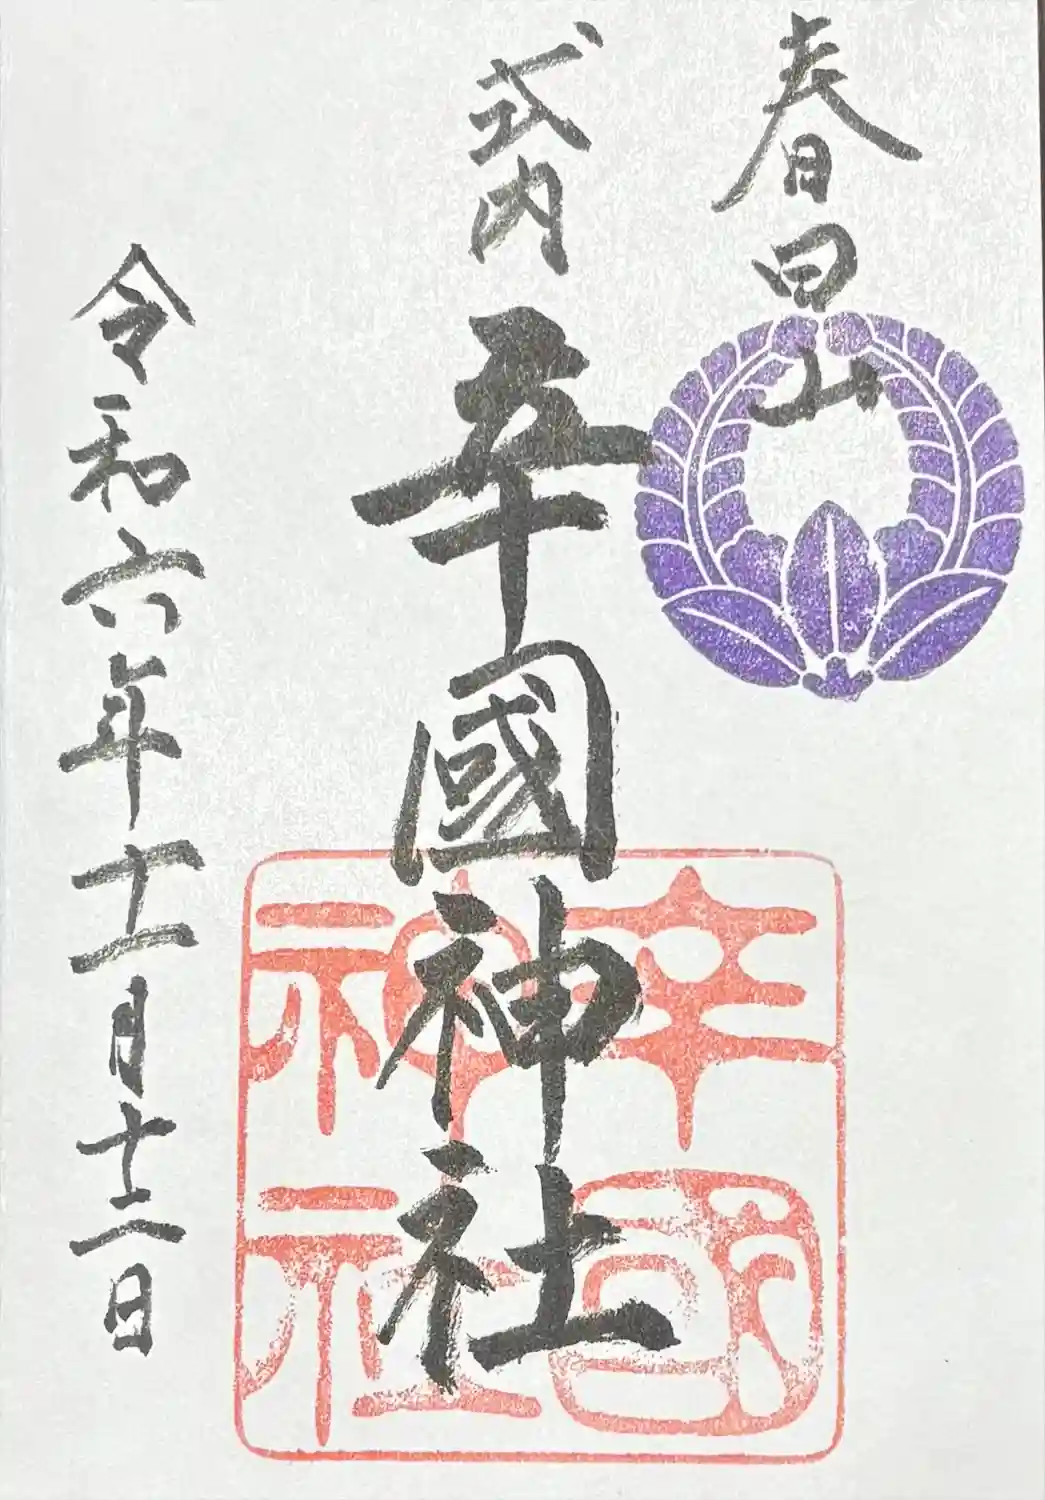 春日山
式内 辛國神社
令和六年十一月十二日
辛國
神社